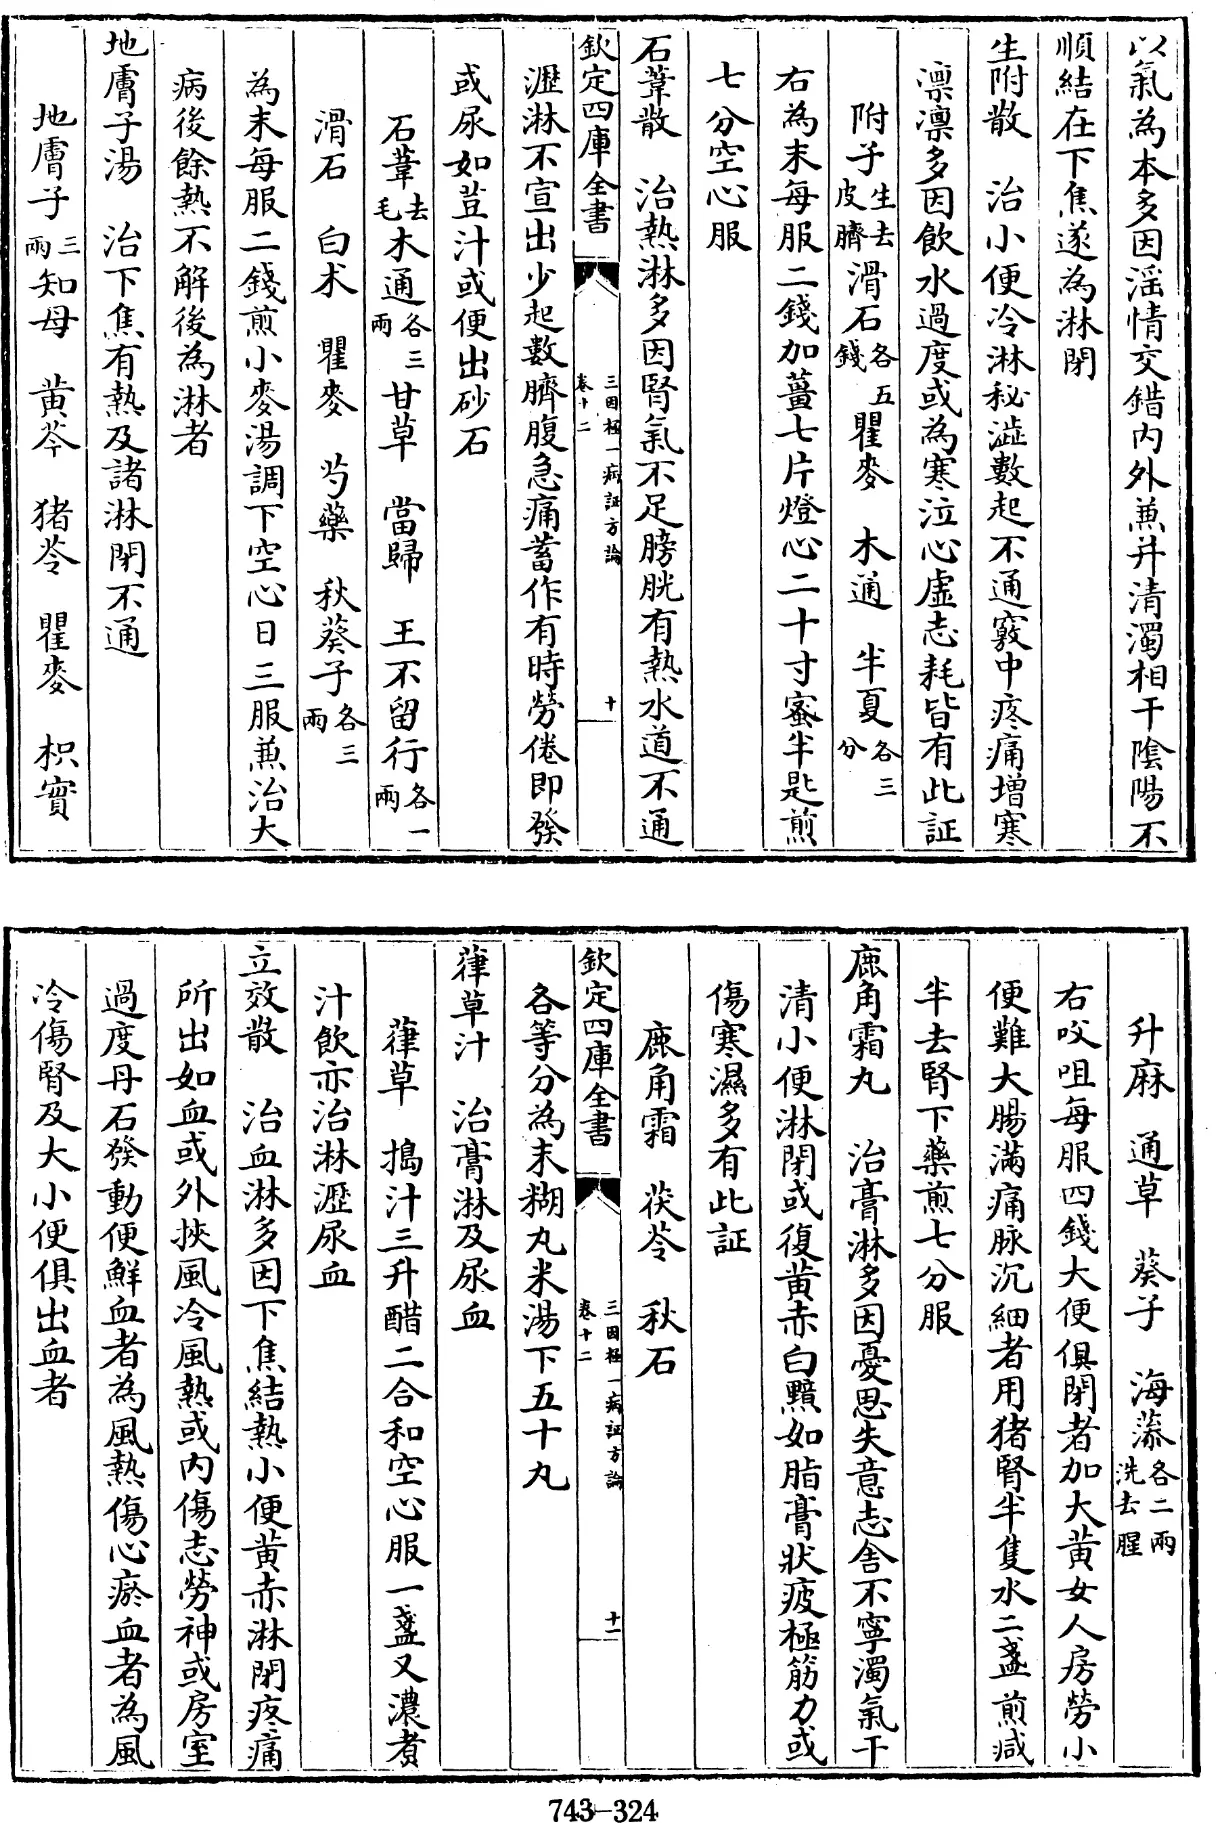 以氣為本多因滛情交錯内外兼并清濁相干隂陽不
順結在下焦遂為淋閉
生附散　治小便冷淋秘澁數起不通竅中疼痛增寒
凛凛多因飲水過度或為寒泣心虛志耗皆有此証
附子生去皮臍滑石各五錢瞿麥　木通　半夏各三分
右為末每服二錢加薑七片燈心二十寸蜜半匙煎
七分空心服
石葦散　治熱淋多因腎氣不足膀胱有熱水道不通
欽定四庫全書　三因極一病証方論　卷十二　十
瀝淋不宣出少起數臍腹急痛蓄作有時勞倦即發
或尿如荳汁或便出砂石
石葦去毛木通各三兩甘草　當歸　王不留行各一兩
滑石　白术　瞿麥　芍藥　秋葵子各三兩
為末每服二錢煎小麥湯調下空心日三服兼治大
病後餘熱不解後為淋者
地膚子湯　治下焦有熱及諸淋閉不通
地膚子三兩知母　黄芩　猪苓　瞿麥　枳實
升麻　通草　葵子　海藻各二兩洗去腥
右㕮咀每服四錢大便俱閉者加大黄女人房勞小
便難大腸滿痛脉沉細者用猪腎半隻水二盞煎減
半去腎下藥煎七分服
鹿角霜丸　治膏淋多因憂思失意志舍不寧濁氣干
清小便淋閉或復黄赤白黯如脂膏狀疲極筋力或
傷寒濕多有此証
鹿角霜　茯苓　秋石
欽定四庫全書　三因極一病証方論　卷十二　十一
各等分為末糊丸米湯下五十丸
葎草汁　治膏淋及尿血
葎草　搗汁三升醋二合和空心服一盞又濃煮
汁飲亦治淋瀝尿血
立效散　治血淋多因下焦結熱小便黄赤淋閉疼痛
所出如血或外挾風冷風熱或内傷志勞神或房室
過度丹石發動便鮮血者為風熱傷心瘀血者為風
冷傷腎及大小便俱出血者
743-324